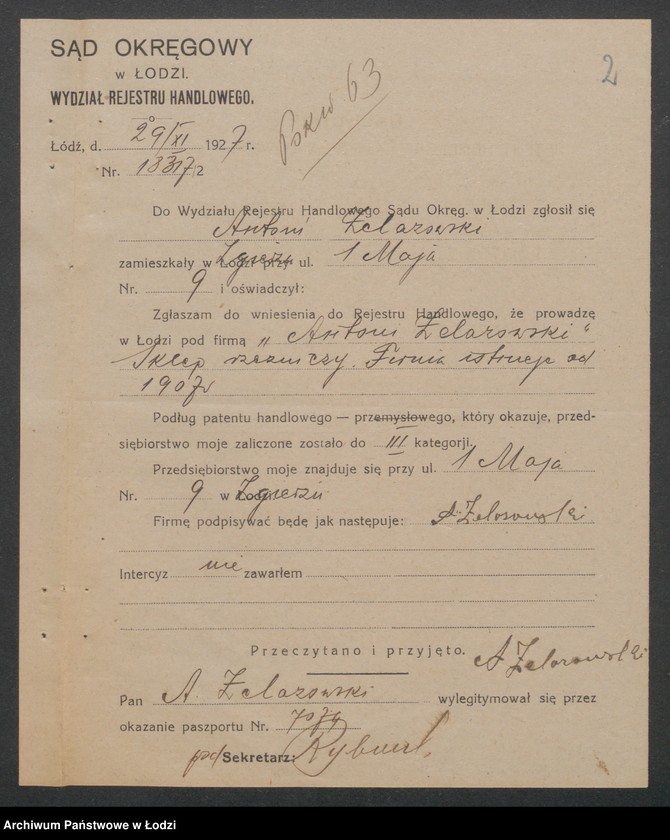 SĄD OKRĘGOWY
w ŁODZI.
WYDZIAŁ REJESTRU HANDLOWEGO.
2
63
Łódź, d. 29/XI 1927 r.
Nr. 13317/2
Do Wydziału Rejestru Handlowego Sądu Okręg. w Łodzi zgłosił się
Antoni Żelazowski
zamieszkały w Łodzi przy Zgierzu ul. 1 Maja
Nr. 9 i oświadczył:
Zgłaszam do wniesienia do Rejestru Handlowego, że prowadzę
w Łodzi pod firmą „Antoni Żelazowski"
Sklep rzeźniczy. Firma istnieje od
1907 r
Podług patentu handlowego — przemysłowego, który okazuje, przed-
siębiorstwo moje zaliczone zostało do III kategorji.
Przedsiębiorstwo moje znajduje się przy ul. 1 Maja
Nr. 9 w Łodzi Zgierzu
Firmę podpisywać będę jak następuje: A. Żelazowski
Intercyz nie zawarłem
Przeczytano i przyjęto. A Żelazowski
Pan A. Żelazowski wylegitymował się przez
okazanie paszportu Nr.
Sekretarz:
Archiwum Państwowe w Łodzi